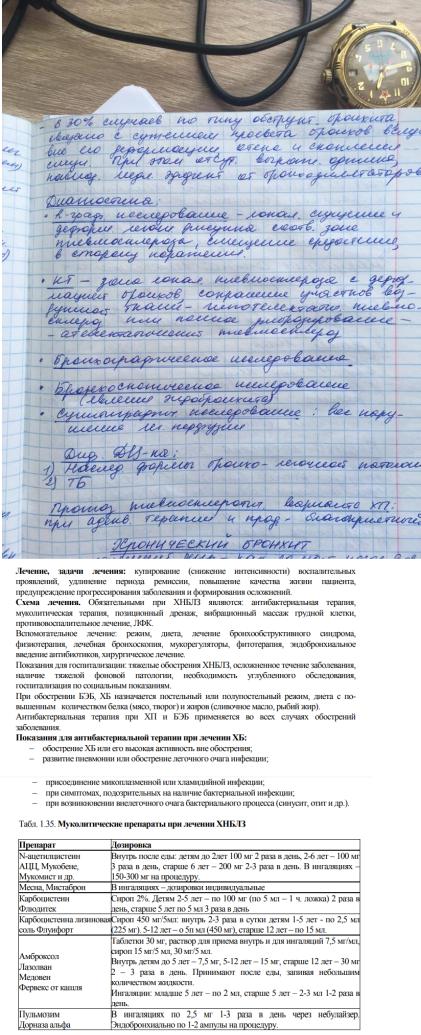 - в 30% случаев по типу обструкт. бронхита
связано с сужением просвета бронхов вслед
вие его деформации, отека и скопления
слизи. При этом отсут.
Диагностика:
• R-град исследование – локал. сгущение и
деформ. легочн. рисунка соотв. зоне
пневмосклероза, смещение средостения,
в сторону поражения.
• КТ – зона локал. пневмосклероза с дефор-
мацией бронхов, сохранение участков воз-
душной ткани – гиповентилят. пневмо-
склероз или полное
– ателектатический пневмосклероз
• Бронхографическое исследование
• Бронхоскопическое исследование
(явления эндобронхита)
• Сцинтиграфич исследование: все нару-
шение лег. перфузии
Диф. ДЦ-ка:
1) Наслед формы бронхо-легочной патологи
2) ТБ
Прогноз пневмосклеротич. варианта ХП:
при адекв. терапии и прод - благоприятный
ХРОНИЧЕСКИЙ БРОНХИТ
Лечение, задачи лечения: купирование (снижение интенсивности) воспалительных
проявлений, удлинение периода ремиссии, повышение качества жизни пациента,
предупреждение прогрессирования заболевания и формирования осложнений.
Схема лечения. Обязательными при ХНБЛЗ являются: антибактериальная терапия,
муколитическая терапия, позиционный дренаж, вибрационный массаж грудной клетки,
противовоспалительное лечение, ЛФК.
Вспомогательное лечение: режим, диета, лечение бронхообструктивного синдрома,
физиотерапия, лечебная бронхоскопия, мукорегуляторы, фитотерапия, эндобронхиальное
введение антибиотиков, хирургическое лечение.
Показания для госпитализации: тяжелые обострения ХНБЛЗ, осложненное течение заболевания,
наличие тяжелой фоновой патологии, необходимость углубленного обследования,
госпитализация по социальным показаниям.
При обострении БЭБ, ХБ назначается постельный или полупостельный режим, диета с по-
вышенным количеством белка (мясо, творог) и жиров (сливочное масло, рыбий жир).
Антибактериальная терапия при ХП и БЭБ применяется во всех случаях обострений
заболевания.
Показания для антибактериальной терапии при лечении ХБ:
– обострение ХБ или его высокая активность вне обострения;
– развитие пневмонии или обострение легочного очага инфекции;
– присоединение микоплазменной или хламидийной инфекции;
– при симптомах, подозрительных на наличие бактериальной инфекции;
– при возникновении внелегочного очага бактериального процесса (синусит, отит и др.).
Табл. 1.35. Муколитические препараты при лечении ХНБЛЗ
Препарат Дозировка
N-ацетилцистеин Внутрь после еды: детям до 2лет 100 мг 2 раза в день, 2-6 лет – 100 мг
АЦЦ, Мукобене, 3 раза в день, старше 6 лет – 200 мг 2-3 раза в день. В ингаляциях –
Мукомист и др. 150-300 мг на процедуру.
Месна, Мистаброн В ингаляциях – дозировки индивидуальные
Карбоцистеин Сироп 2%. Детям 2-5 лет – по 100 мг (по 5 мл – 1 ч. ложка) 2 раза в
Флюдитек день, старше 5 лет по 5 мл 3 раза в день
Карбоцистеина лизиновая Сироп 450 мг/5мл: внутрь 2-3 раза в сутки детям 1-5 лет - по 2,5 мл
соль Флуифорт (225 мг). 5-12 лет – о 5п мл (450 мг), старше 12 лет – по 15 мл.
Таблетки 30 мг, раствор для приема внутрь и для ингаляций 7,5 мг/мл,
сироп 15 мг/5 мл, 30 мг/5 мл.
Амброксол Внутрь детям до 5 лет – 7,5 мг, 5-12 лет – 15 мг, старше 12 лет – 30 мг
Лазолван 2 – 3 раза в день. Принимают после еды, запивая небольшим
Медовен количеством жидкости.
Фервекс от кашля Ингаляции: младше 5 лет – по 2 мл, старше 5 лет – 2-3 мл 1-2 раза в
день.
Пульмозим В ингаляциях по 2,5 мг 1-3 раза в день через небулайзер.
Дорназа альфа Эндобронхиально по 1-2 ампулы на процедуру.